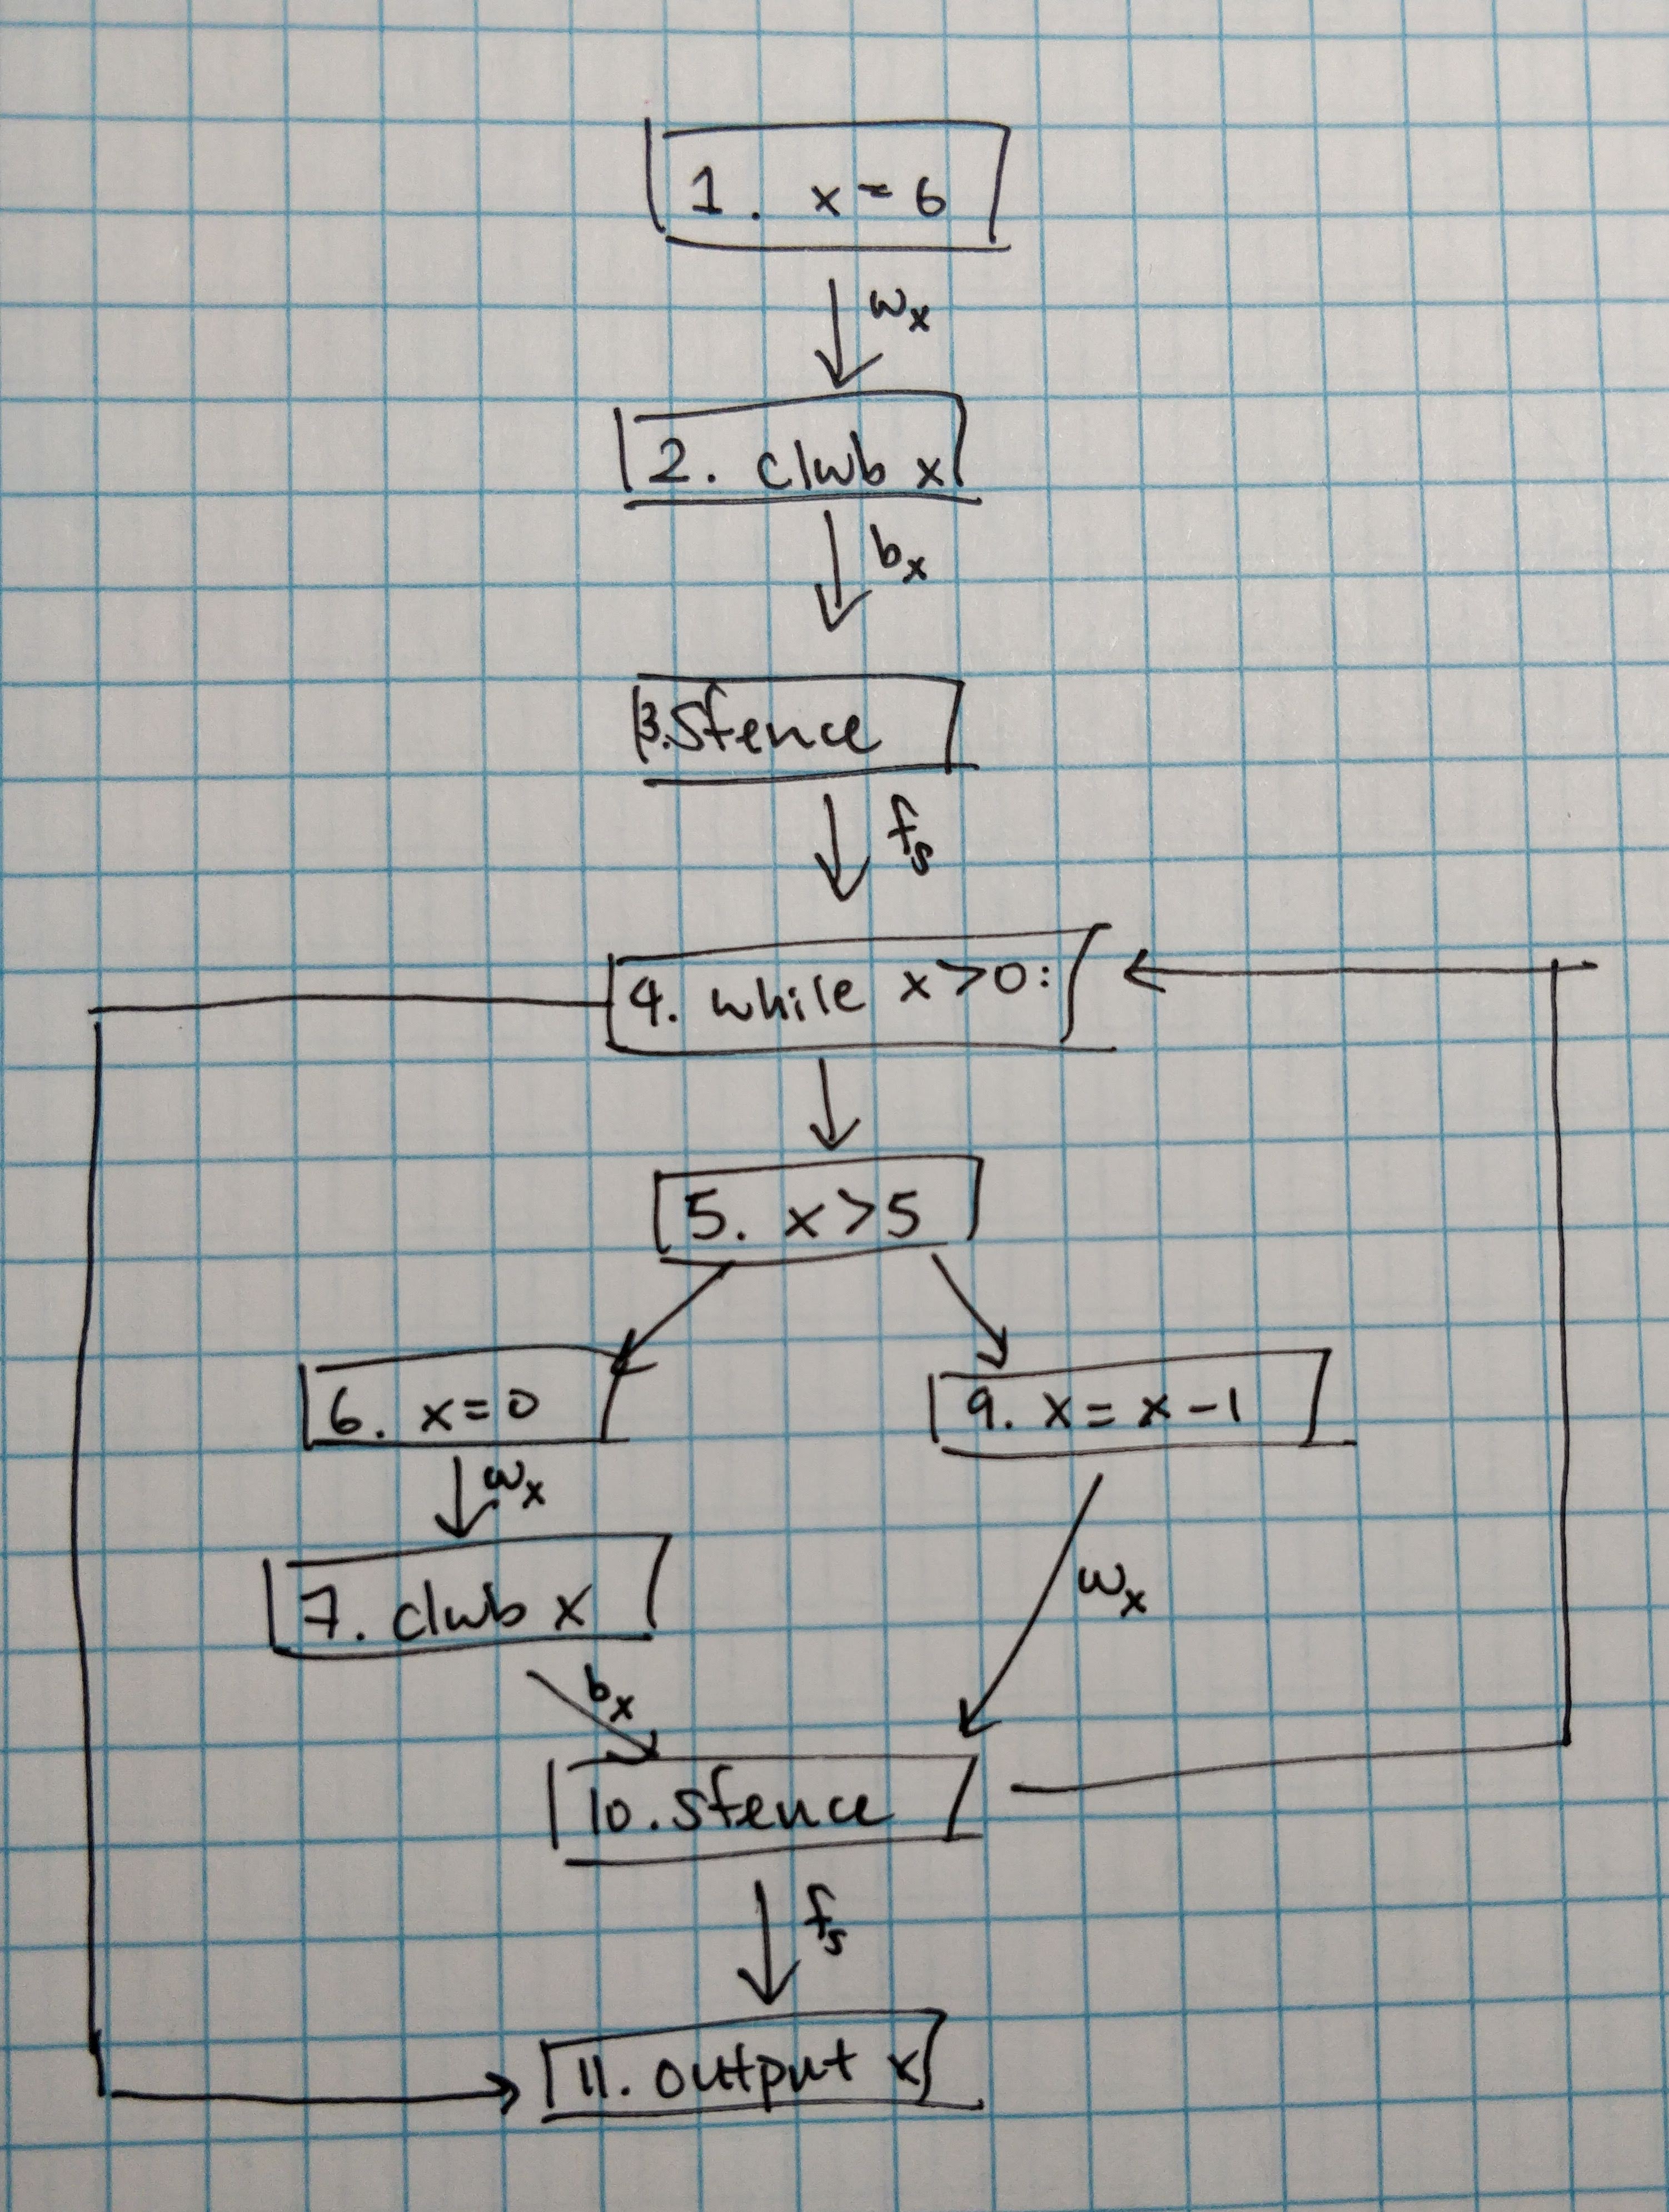 1. x = 6
wx
2. clwb x
bx
3. sfence
fs
4. while x>0:
5. x>5
6. x=0
9. x= x-1
wx
7. clwb x
wx
bx
10. sfence
fs
11. output x